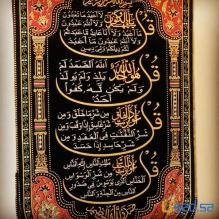 قُلْ يَا أَيُّهَا الْكَافِرُونَ
لَا أَعْبُدُ مَا تَعْبُدُونَ
وَلَا أَنْتُمْ عَابِدُونَ
مَا أَعْبُدُ وَلَا أَنَا عَابِدٌ مَا عَبَدْتُمْ
وَلَا أَنْتُمْ عَابِدُونَ مَا أَعْبُدُ
لَكُمْ دِينُكُمْ وَلِيَ دِينِ
قُلْ هُوَ اللَّهُ أَحَدٌ
اللَّهُ الصَّمَدُ لَمْ
يَلِدْ وَلَمْ يُولَدْ
وَلَمْ يَكُنْ لَهُ كُفُوًا
أَحَدٌ
قُلْ أَعُوذُ بِرَبِّ الْفَلَقِ
مِنْ شَرِّ مَا خَلَقَ وَمِنْ
شَرِّ غَاسِقٍ إِذَا وَقَبَ وَمِنْ
شَرِّ النَّفَّثَتِ فِي الْعُقَدِ وَمِنْ
شَرِّ حَاسِدٍ إِذَا حَسَدَ
قُلْ أَعُوذُ بِرَبِّ النَّاسِ
مَلِكِ النَّاسِ إِلَهِ النَّاسِ
مِنْ شَرِّ الْوَسْوَاسِ
الْخَنَّاسِ الَّذِي يُوَسْوِسُ فِي صُدُورِ
النَّاسِ مِنَ الْجِنَّةِ وَالنَّاسِ